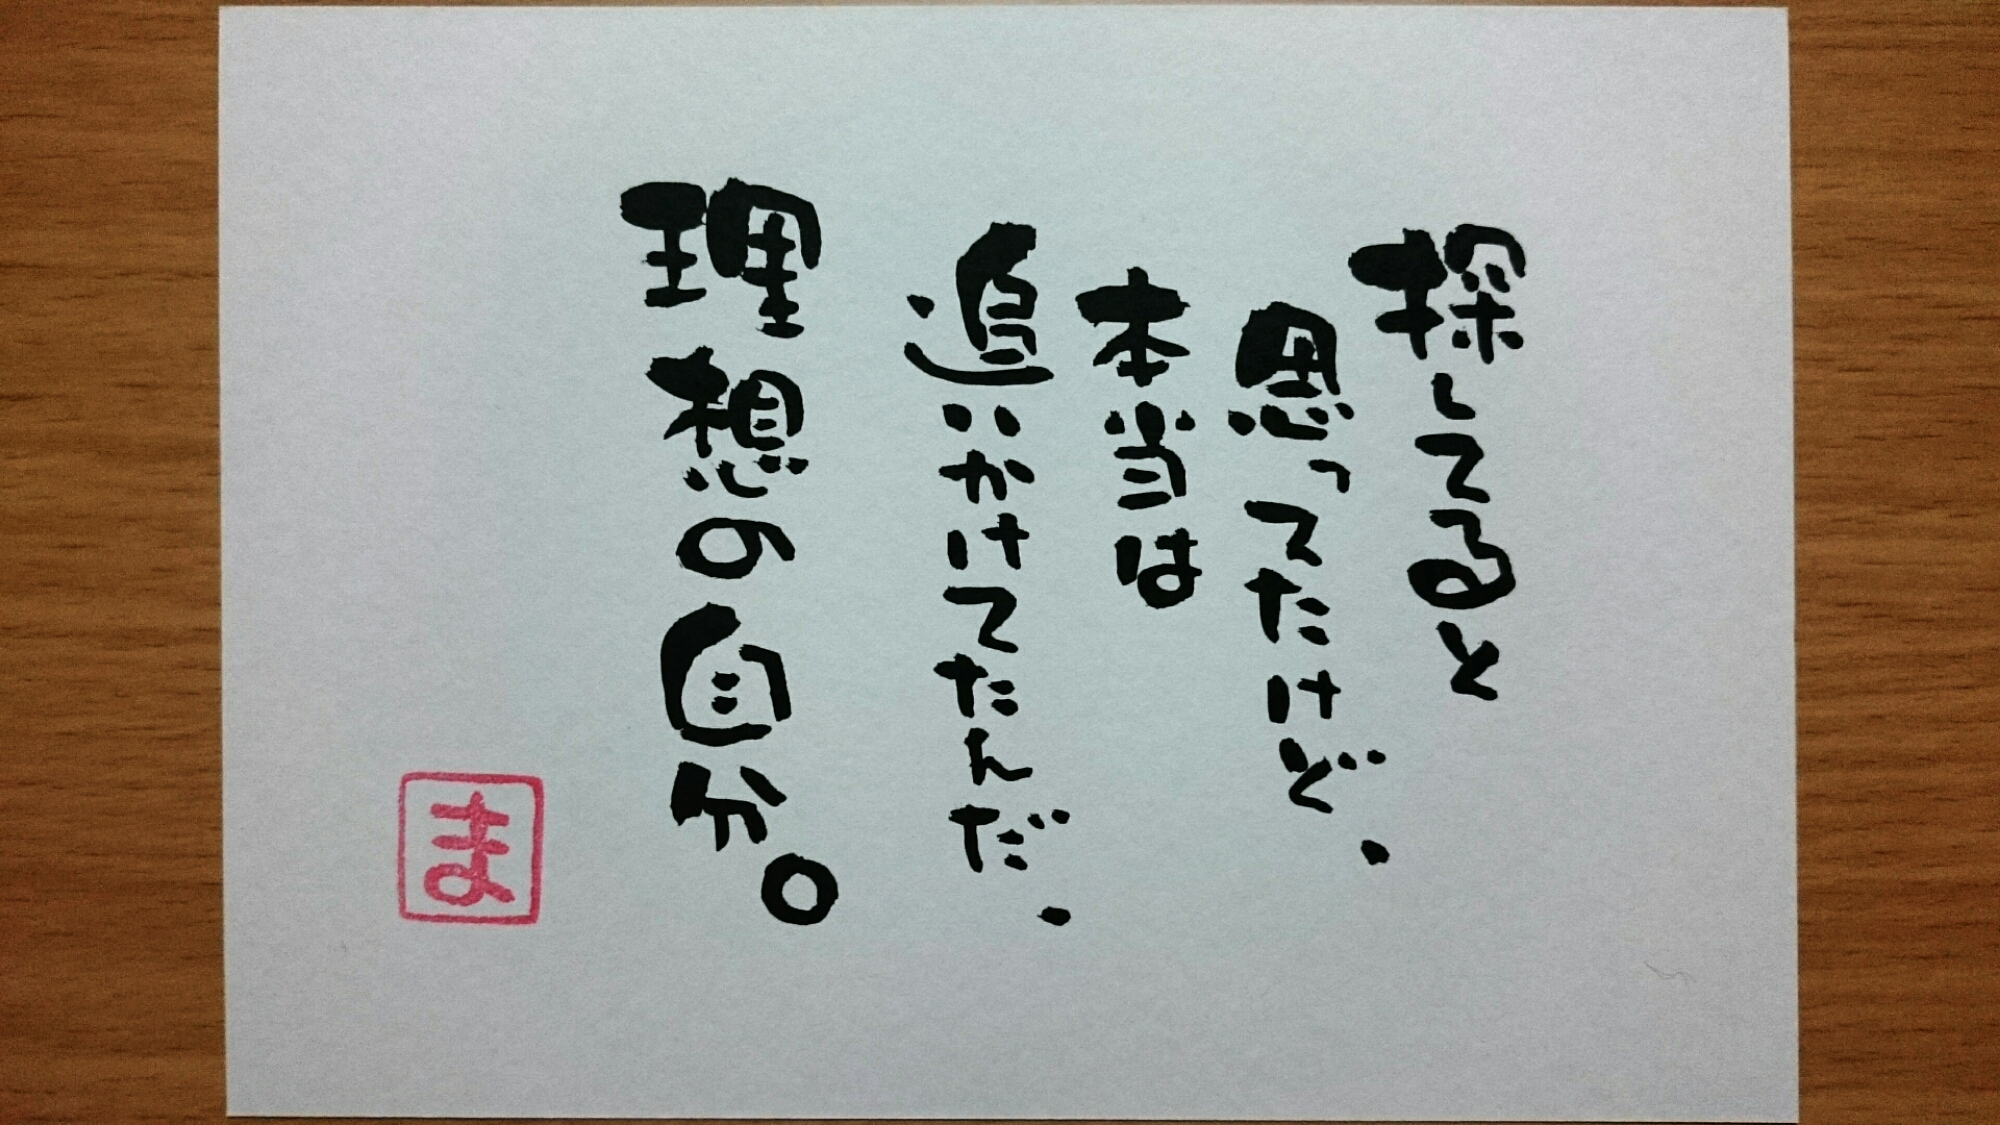 探してると
思ってたけど、
本当は
追いかけてたんだ、
理想の自分。
ま